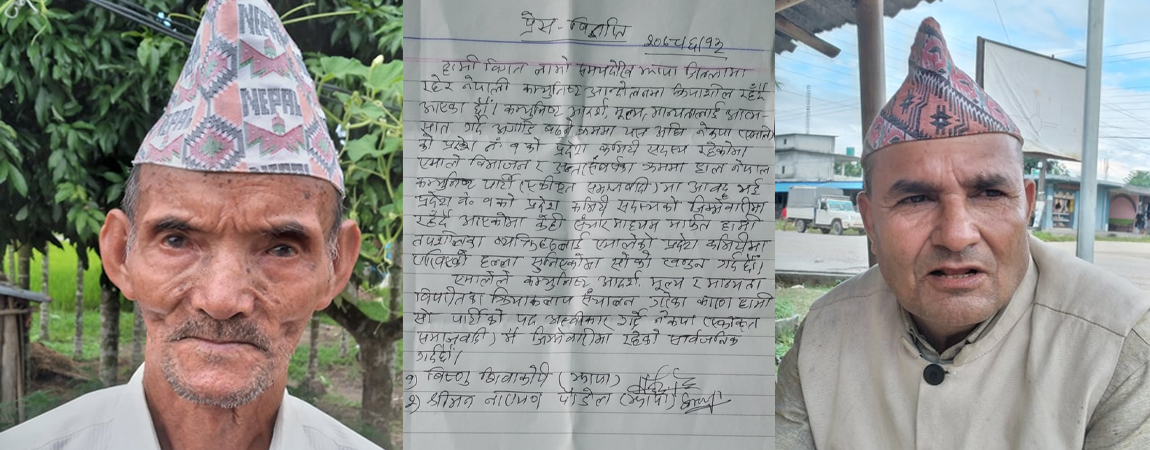 NEPAL
NEPAL
प्रेस-विज्ञप्ति
२०७८/६/१३
हामी विगत लामो समयदेखि झापा जिल्लामा
रहेर नेपाली कम्युनिष्ट आन्दोलनमा क्रियाशील रहँदै
आएका छौं। कम्युनिष्ट आदर्श, मूल्य, मान्यतालाई आत्म-
सात गर्दै अगाडि बढ्ने क्रममा यस अघि नेकपा एमाले
को प्रदेश नं. १ को प्रदेश कमिटी सदस्य रहेकोमा
एमाले विभाजन र अन्तरसंघर्षका क्रममा हाल नेपाल
कम्युनिष्ट पार्टी (एकीकृत समाजवादी) मा आवद्ध भई
प्रदेश नं. १ को प्रदेश कमिटी सदस्यको जिम्मेवारीमा
रहँदै आएकोमा केही संचार माध्यम मार्फत हामी
तपशीलका व्यक्तिहरुलाई एमालेको प्रदेश कमिटीमा
हल्ला सुनिएकोमा सोको खण्डन गर्दछौं।
एमालेले कम्युनिष्ट आदर्श, मूल्य र मान्यता
विपरितका क्रियाकलाप संचालन गरेका कारण हामी
सो पार्टीको पद अस्वीकार गर्दै नेकपा (एकीकृत
समाजवादी) मै जिम्मेवारीमा रहेको सार्वजनिक
गर्दछौं।
१) विष्णु सिवाकोटी (झापा)
२) श्रीमन नारायण पौडेल (झापा)